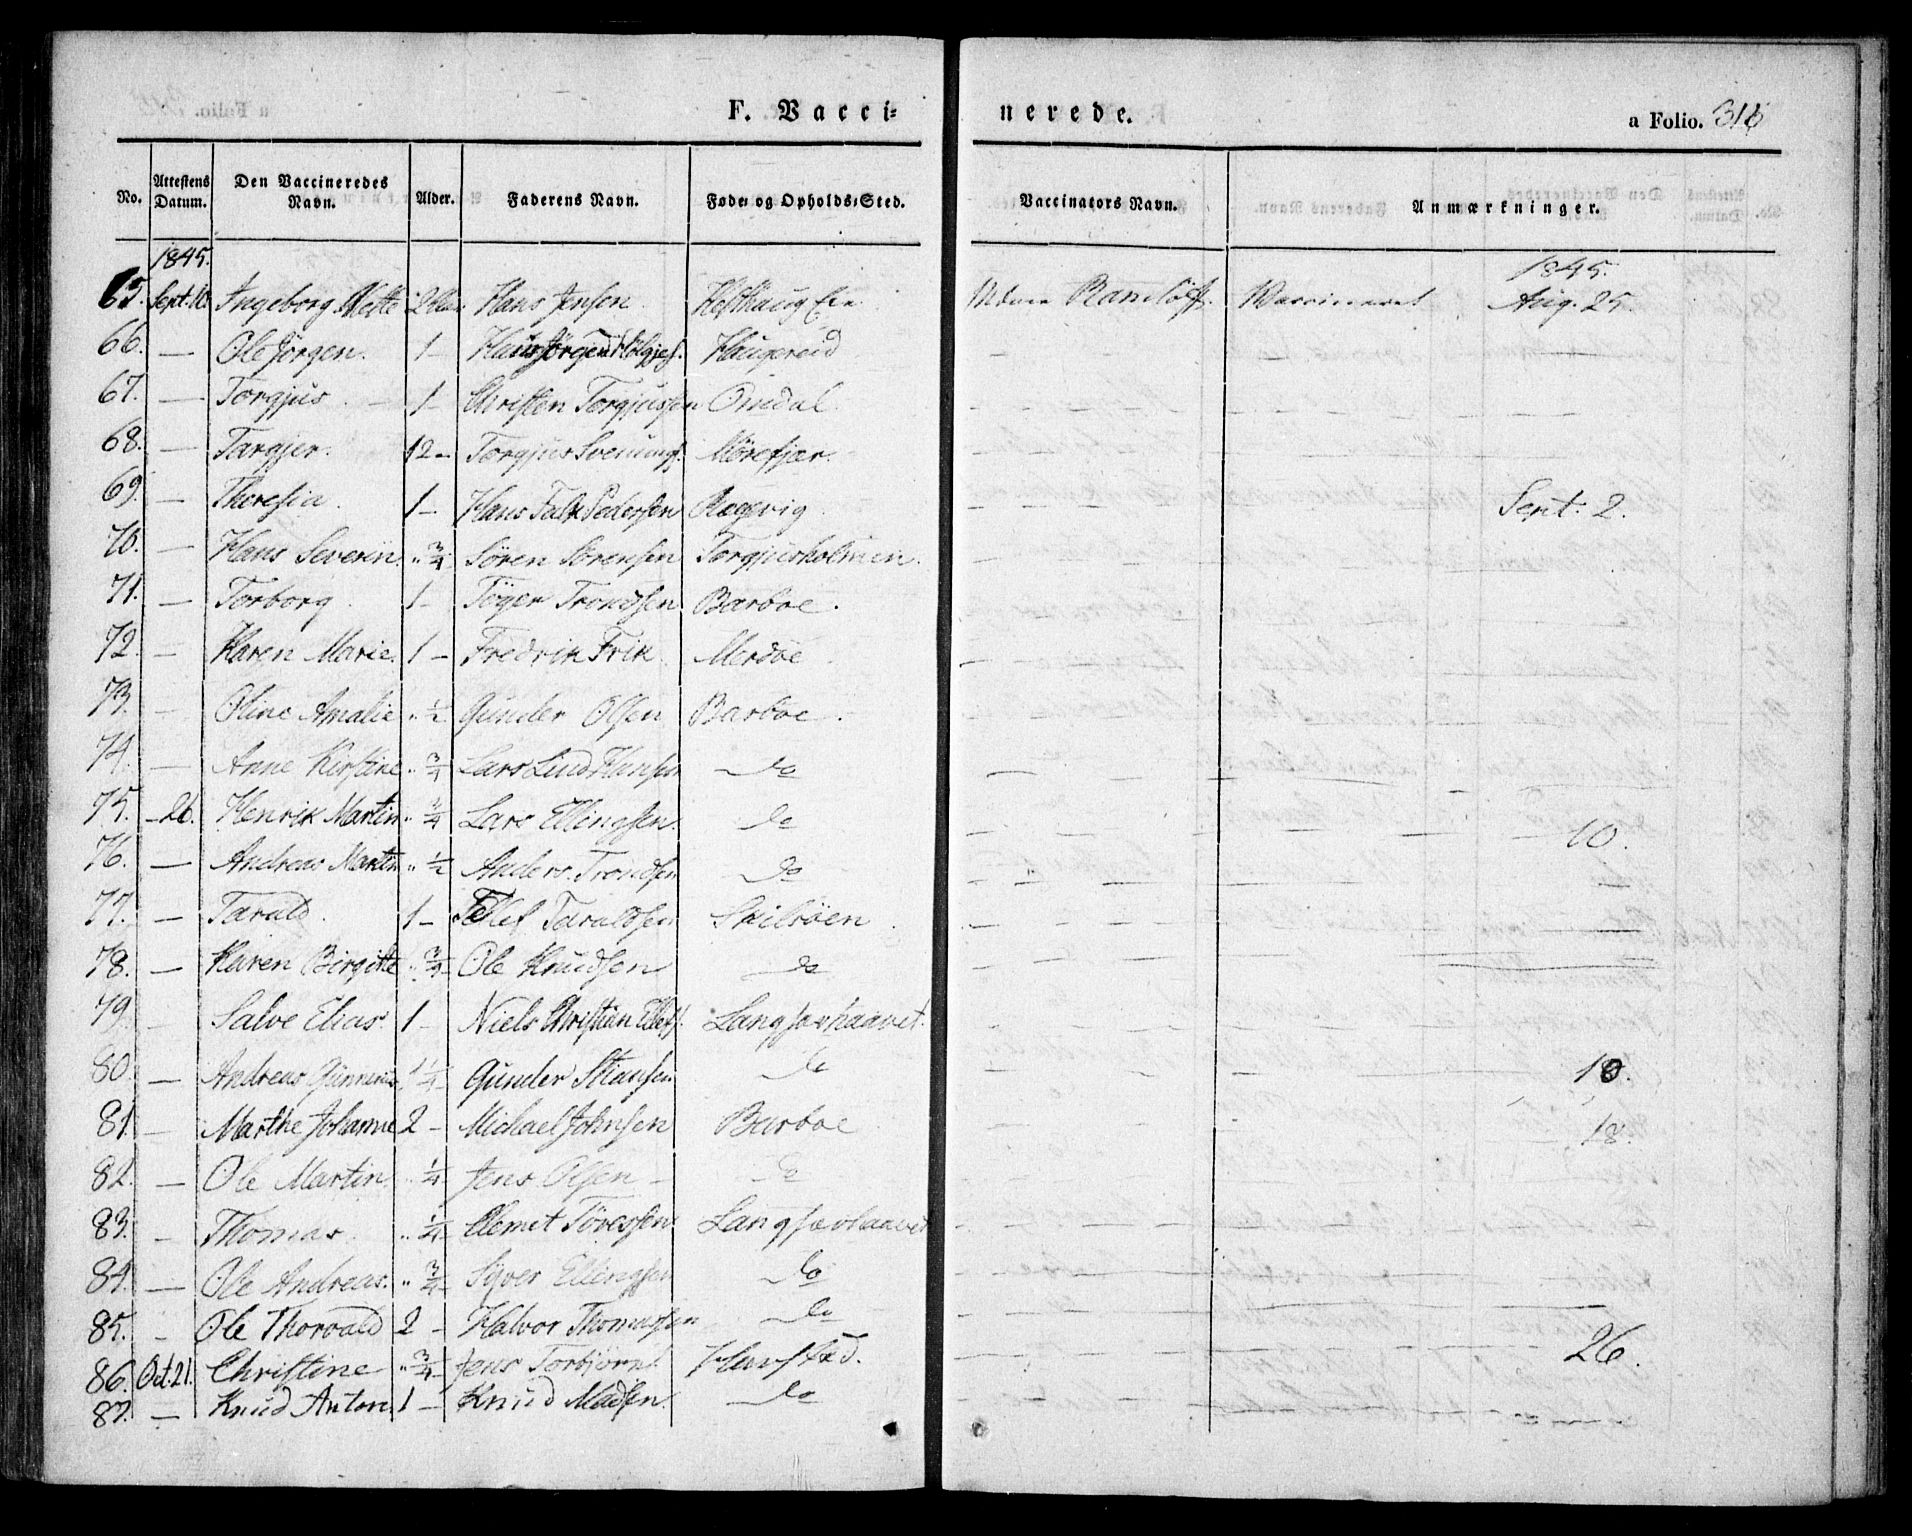 F. Vacci- nerede. a Folio. 316
No. Attestens Datum. Den Vaccineredes Navn. Alder. Faderens Navn. Føde- og Opholds-Sted. Vaccinators Navn. Anmærkninger.
1845. 1845.
65. Sept. 10. Ingeborg Mette 2 Hans Jensen Vaccineret Aug. 25.
66. — Ole Jörgen. 1 — Haugereid
67. — Torgjus 1 — Christen Torgjussen Omdal
68. — Targjer. 12 — Torgjus Svenungs. Mörefjær.
69. — Theresia. 1 — Hans Falk Pedersen Rægevig Sept. 2.
70. — Hans Severin. " 3/4 Sören Sörensen Torgjusholmen.
71. — Torborg 1 — Töger Trondsen Barboe.
72. — Karen Marie. 1 — Fredrik Frik Merdöe
73. — Oline Amalie " 1/2 Gunder Olsen Barboe.
74. — Anne Kirstine " 3/4 Lars Lind Hansen do
75. — 26. Henrik Martin " 3/4 Lars Ellingsen. do 10.
76. — Andreas Martin " 1/2 Anders Trondsen do
77. — Tarald. 1 — Tellef Taraldsen Skilsöen
78. — Karen Birgitte " 3/4 Ole Knudsen do
79. — Salve Elias. 1 — Niels Christian Ellefs. Langsævhaavet.
80. — Andreas Gunnerius 1 1/4 Gunder do 18.
81. — Marthe Johanne 2 — Michael Johnsen Barboe 18.
82. — Ole Martin. " 1/4 Jens Olsen — do
83. — Thomas. " 1/4 Clemet Töressen Langsævhaavet
84. — Ole Andreas. " 3/4 Syver Ellingsen do
85. — Ole Thorvald 2 — Halvor Thomassen do
86. Oct. 21. Christine " 3/4 Jens Torbjörns. Harstad. 26.
87. — Knud Anton 1 — Knud Madsen. do